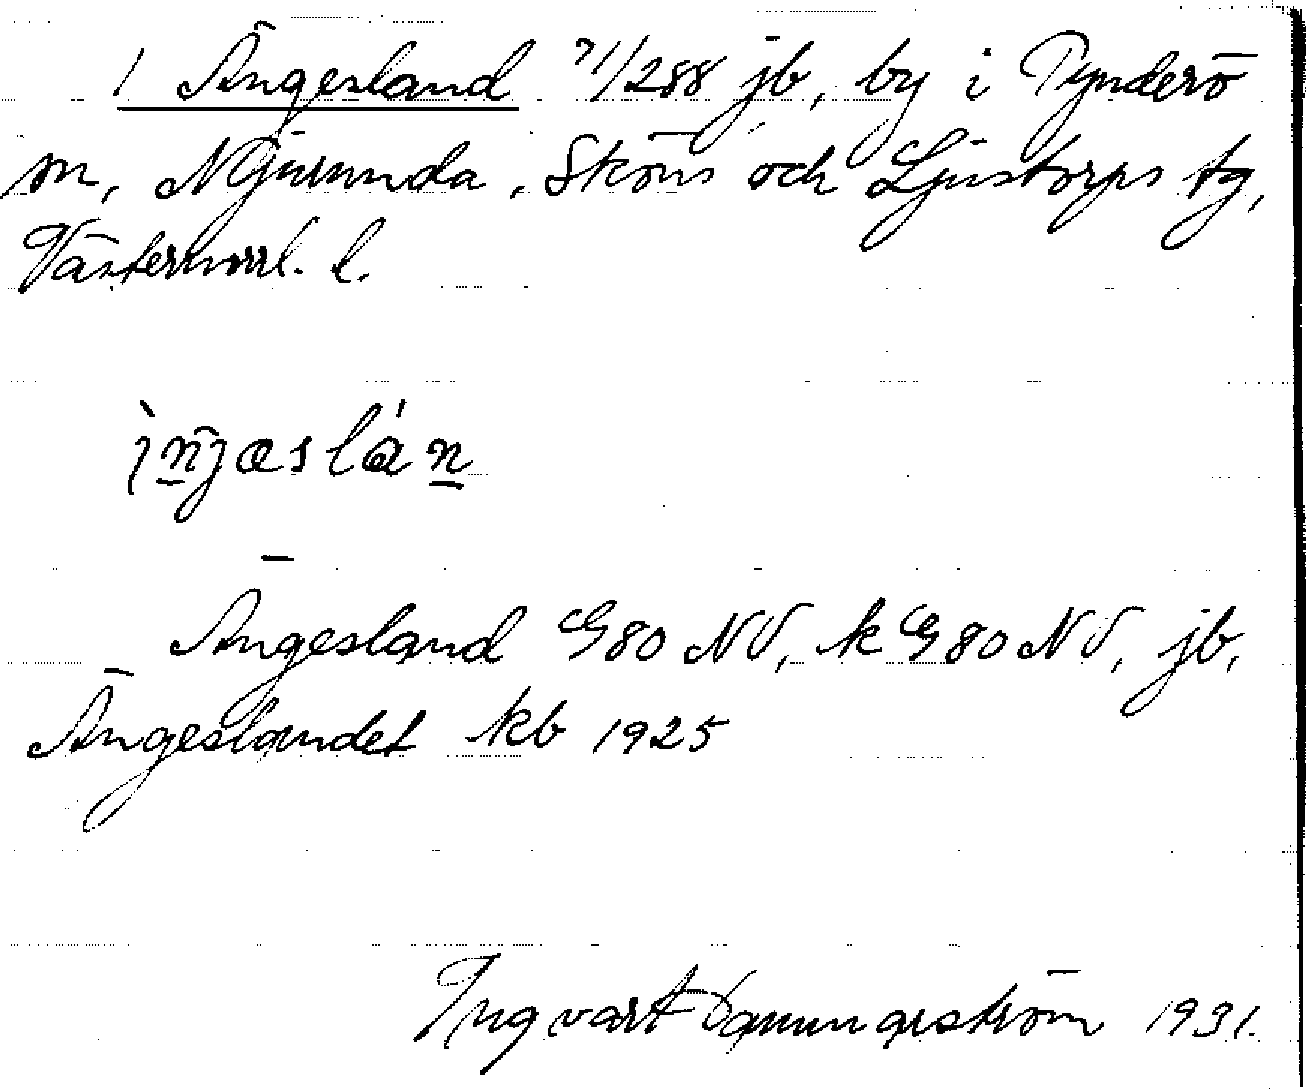 1 Ängesland 71/288 jb, by i Tynderö
sn, Njurunda, Sköns och Ljustorps tg,
Västernorrl. l.
Ängesland G80 NV, k G80 NV, jb,
Ängeslandet kb 1925
Ingvart 1931.